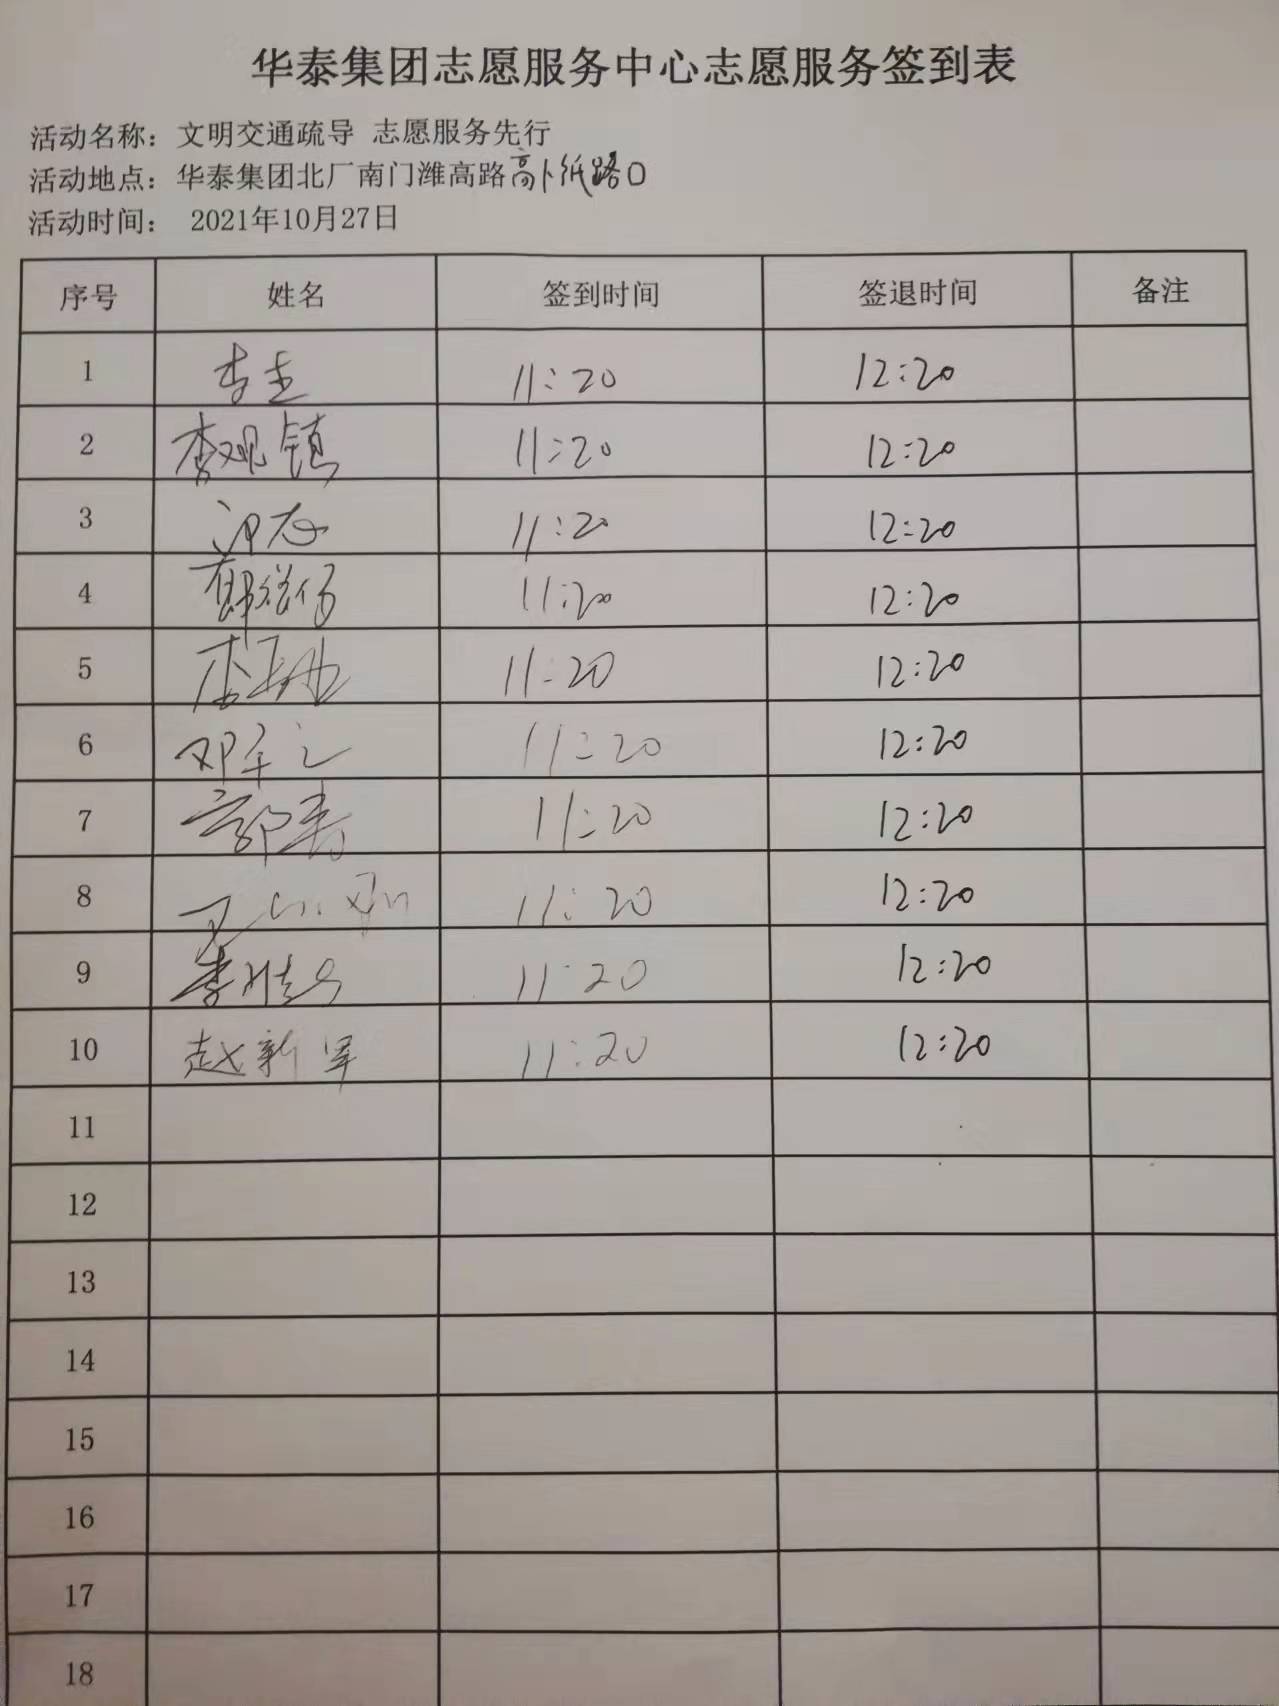 华泰集团志愿服务中心志愿服务签到表
活动名称：文明交通疏导 志愿服务先行
活动地点：华泰集团北厂南门潍高路路口
活动时间： 2021年10月27日
序号 姓名 签到时间 签退时间 备注
1 李 11:20 12:20
2 李观镇 11:20 12:20
3 11:20 12:20
4 11:20 12:20
5 李 11:20 12:20
6 邓军 11:20 12:20
7 郭 11:20 12:20
8 王 11:20 12:20
9 李 11:20 12:20
10 赵新军 11:20 12:20
11
12
13
14
15
16
17
18